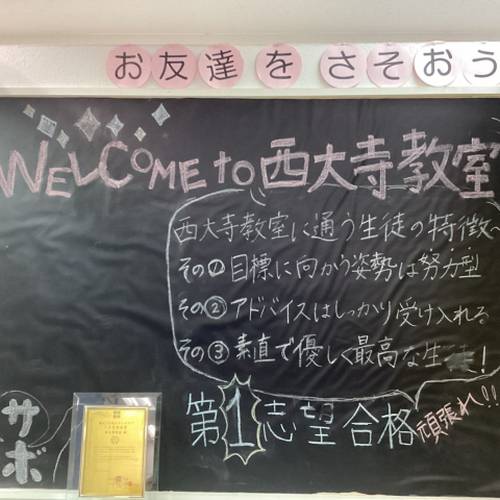 お友達をさそおう
WELCOME to 西大寺教室
西大寺教室に通う生徒の特徴
その① 目標に向かう姿勢は努力型
その② アドバイスはしっかり受け入れる
その③ 素直で優しく最高な生!
第1志望合格
頑張れ!!
サボ